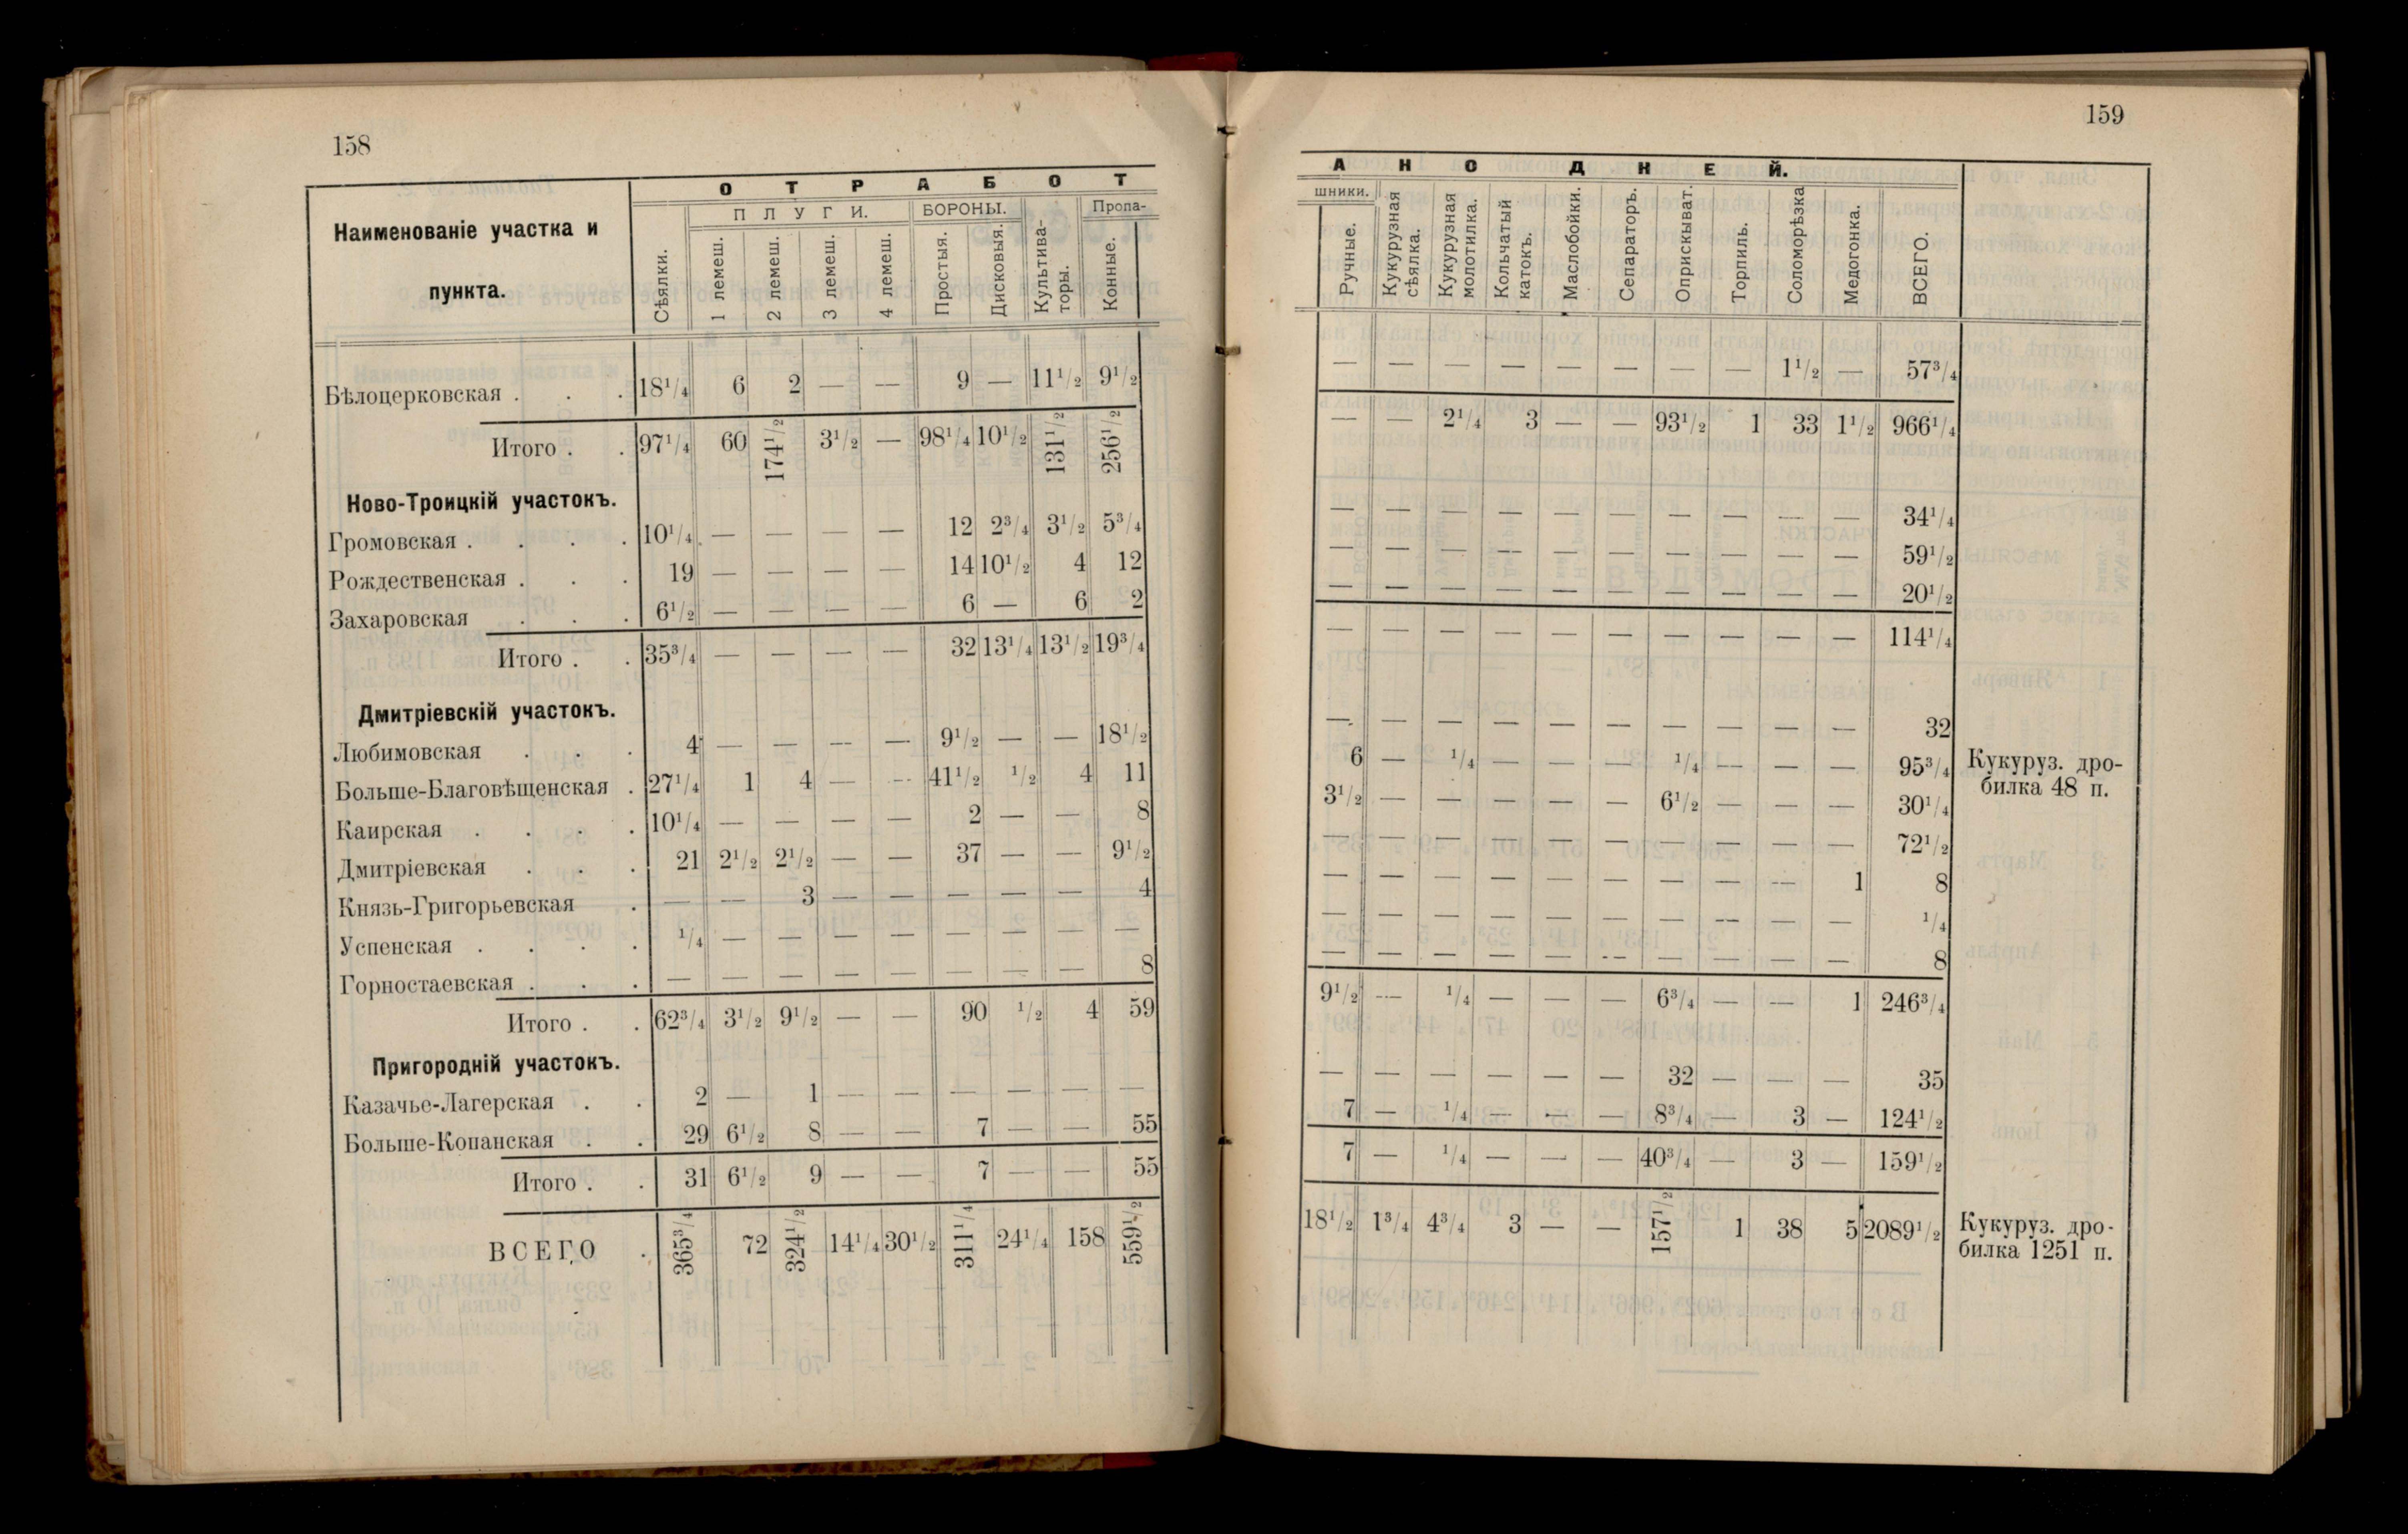 158
Наименованіе участка и
пункта.
О Т Р А Б О Т
Сѣялки.
П Л У Г И.
1 лемеш.
2 лемеш.
3 лемеш.
4 лемеш.
БОРОНЫ.
Простыя.
Дисковыя.
Культива-
торы.
Пропа-
Конные.
Бѣлоцерковская . . . 18¹/₄ 6 2 — — 9 — 11¹/₂ 9¹/₂
Итого . . 97¹/₄ 60 174¹/₂ 3¹/₂ — 98¹/₄ 10¹/₂ 131¹/₂ 256¹/₂
Ново-Троицкій участокъ.
Громовская . . . . 10¹/₄ — — — — 12 2³/₄ 3¹/₂ 5³/₄
Рождественская . . . 19 — — — — 14 10¹/₂ 4 12
Захаровская . . . 6¹/₂ — — — — 6 — 6 2
Итого . . 35³/₄ — — — — 32 13¹/₄ 13¹/₂ 19³/₄
Дмитріевскій участокъ.
Любимовская . . . 4 — — — — 9¹/₂ — — 18¹/₂
Больше-Благовѣщенская . 27¹/₄ 1 4 — — 41¹/₂ ¹/₂ 4 11
Каирская . . . . 10¹/₄ — — — — 2 — — 8
Дмитріевская . . . 21 2¹/₂ 2¹/₂ — — 37 — — 9¹/₂
Князь-Григорьевская . — — 3 — — — — — 4
Успенская . . . . ¹/₄ — — — — — — — —
Горностаевская . . . — — — — — — — — 8
Итого . . 62³/₄ 3¹/₂ 9¹/₂ — — 90 ¹/₂ 4 59
Пригородній участокъ.
Казачье-Лагерская . . 2 — 1 — — — — — —
Больше-Копанская . . 29 6¹/₂ 8 — — 7 — — 55
Итого . . 31 6¹/₂ 9 — — 7 — — 55
ВСЕГО . 365³/₄ 72 324¹/₂ 14¹/₄ 30¹/₂ 311¹/₄ 24¹/₄ 158 559¹/₂
159
А Н О Д Н Е Й.
шники.
Ручные.
Кукурузная
сѣялка.
Кукурузная
молотилка.
Кольчатый
катокъ.
Маслобойки.
Сепараторъ.
Оприскыват.
Торпиль.
Соломорѣзка
Медогонка.
ВСЕГО.
— — — — — — — — 1¹/₂ — 57³/₄
— — 2¹/₄ 3 — — 93¹/₂ 1 33 1¹/₂ 966¹/₄
— — — — — — — — — — 34¹/₄
— — — — — — — — — — 59¹/₂
— — — — — — — — — — 20¹/₂
— — — — — — — — — — 114¹/₄
— — — — — — — — — — 32
6 — ¹/₄ — — — ¹/₄ — — — 95³/₄ Кукуруз. дро-
билка 48 п.
3¹/₂ — — — — — 6¹/₂ — — — 30¹/₄
— — — — — — — — — — 72¹/₂
— — — — — — — — — 1 8
— — — — — — — — — — ¹/₄
— — — — — — — — — — 8
9¹/₂ — ¹/₄ — — — 6³/₄ — — 1 246³/₄
— — — — — — 32 — — — 35
7 — ¹/₄ — — — 8³/₄ — 3 — 124¹/₂
7 — ¹/₄ — — — 40³/₄ — 3 — 159¹/₂
18¹/₂ 1³/₄ 4³/₄ 3 — — 157¹/₂ 1 38 5 2089¹/₂ Кукуруз. дро-
билка 1251 п.